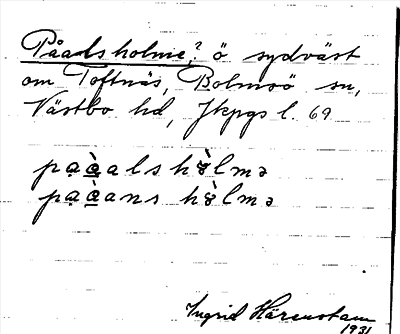 Påals holme? ö sydväst
om Toftnäs, Bolmsö sn,
Västbo hd, Jkpgs l. 69
pa̱à̱alshò̱lmə
pa̱à̱anshò̱lmə
Ingrid Härenstam
1931